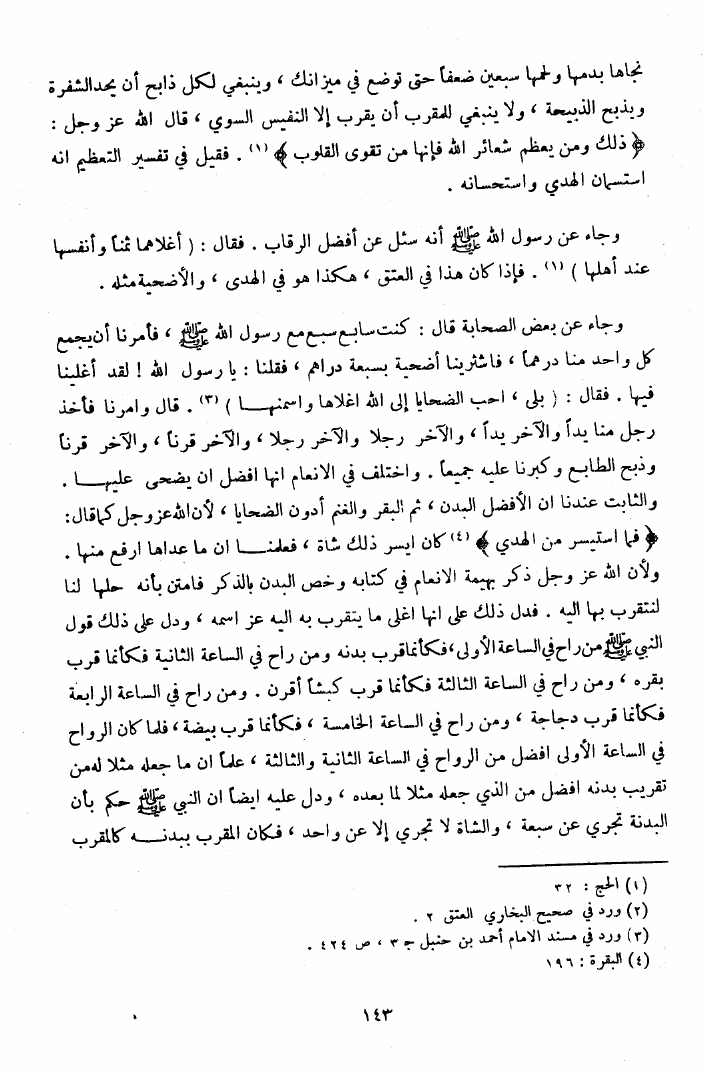 نجاها بدمها ولحمها سبعين ضعفاً حتى توضع في ميزانك ، وينبغي لكل ذابح أن يحد الشفرة
ويذبح الذبيحة ، ولا ينبغي للمقرب أن يقرب إلا النفيس السوي ، قال الله عز وجل :
﴿ ذلك ومن يعظم شعائر الله فإنها من تقوى القلوب ﴾ (١) . فقيل في تفسير التعظيم انه
استسمان الهدي واستحسانه .
وجاء عن رسول الله ﷺ أنه سئل عن أفضل الرقاب . فقال : ( أغلاهما ثمناً وأنفسها
عند أهلها ) (١) . فإذا كان هذا في العتق ، هكذا هو في الهدى ، والأضحية مثله .
وجاء عن بعض الصحابة قال : كنت سابع سبع مع رسول الله ﷺ ، فأمرنا أن يجمع
كل واحد منا درهماً ، فاشترينا أضحية بسبعة دراهم ، فقلنا : يا رسول الله ! لقد أغلينا
فيها . فقال : ( بلى ، احب الضحايا إلى الله اغلاها واسمنهـــا ) (٣) . قال وامرنا فأخذ
رجل منا يداً والآخر يداً ، والآخر رجلا والآخر رجلا ، والآخر قرناً ، والآخر قرناً
وذبح الطابع وكبرنا عليه جميعاً . واختلف في الانعام انها افضل ان يضحى عليهـــا .
والثابت عندنا ان الأفضل البدن ، ثم البقر والغنم أدون الضحايا ، لأن الله عز وجل كما قال:
﴿ فما استيسر من الهدي ﴾ (٤) كان ايسر ذلك شاة ، فعلمنـــا ان ما عداها ارفع منها .
ولأن الله عز وجل ذكر بهيمة الانعام في كتابه وخص البدن بالذكر فامتن بأنه حلها لنا
لنتقرب بها اليه . فدل ذلك على انها اغلى ما يتقرب به اليه عز اسمه ، ودل على ذلك قول
النبي ﷺ من راح في الساعة الأولى، فكأنما قرب بدنه ومن راح في الساعة الثانية فكأنما قرب
بقره ، ومن راح في الساعة الثالثة فكأنما قرب كبشاً أقرن . ومن راح في الساعة الرابعة
فكأنما قرب دجاجة ، ومن راح في الساعة الخامسة ، فكأنما قرب بيضة ، فلما كان الرواح
في الساعة الأولى افضل من الرواح في الساعة الثانية والثالثة ، علماً ان ما جعله مثلا له من
تقريب بدنه افضل من الذي جعله مثلا لما بعده ، ودل عليه ايضاً ان النبي ﷺ حكم بأن
البدنة تجري عن سبعة ، والشاة لا تجري إلا عن واحد ، فكان المقرب ببدنـــه كالمقرب
(١) الحج : ٣٢
(٢) ورد في صحيح البخاري العتق ٢ .
(٣) ورد في مسند الامام أحمد بن حنبل جـ ٣ ، ص ٤٢٤ .
(٤) البقرة : ١٩٦
١٤٣